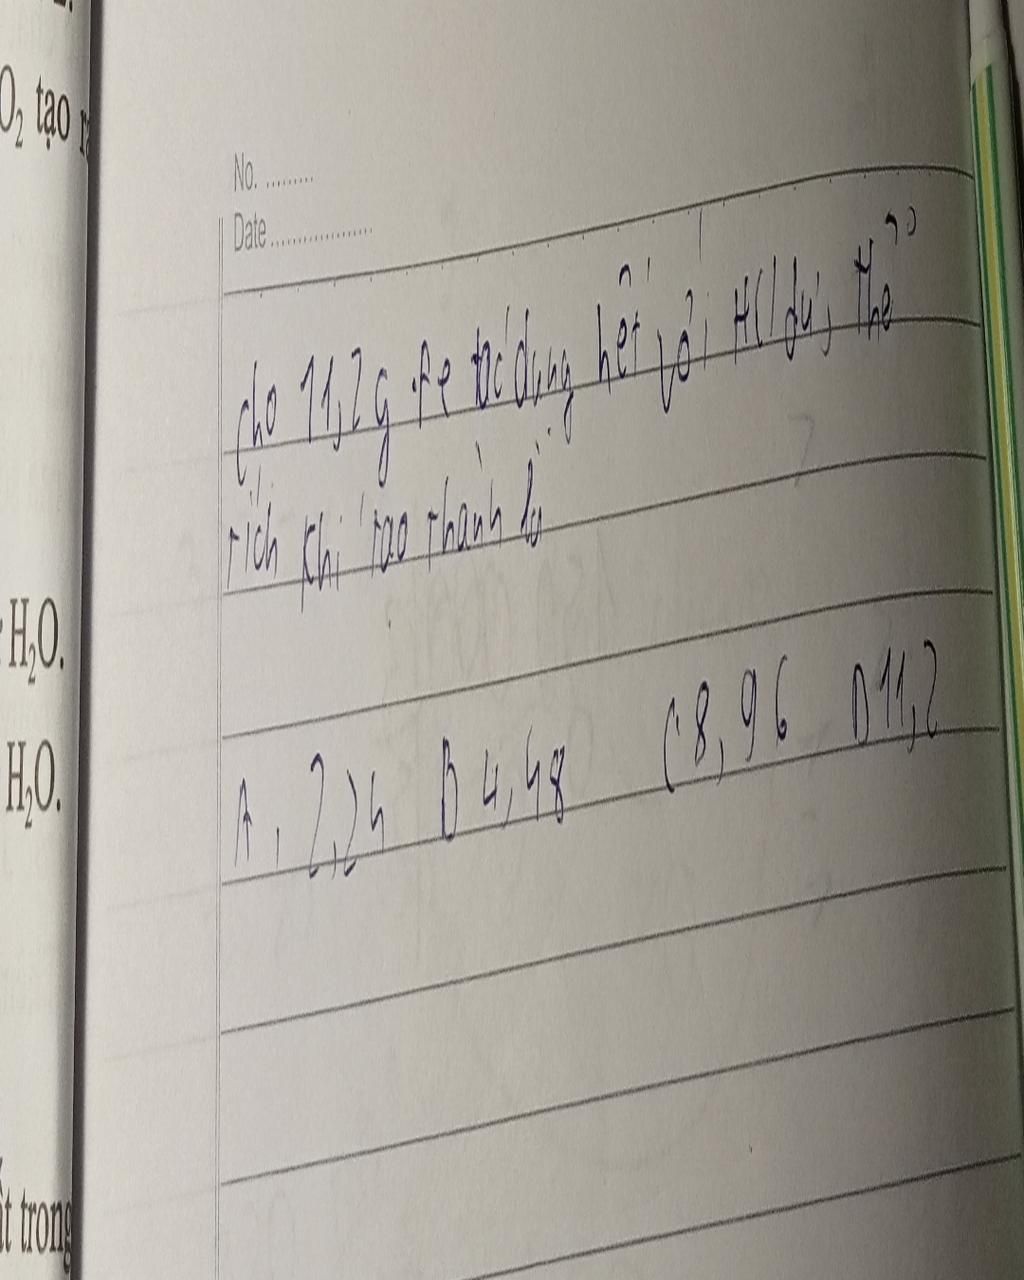 O₂ tạo
No. .........
Date...................
cho 11,2g Fe tác dụng hết với HCl dư, thể
tích khí tạo thành là
H₂O.
A. 2,24 B 4,48 C 8,96 D 11,2
H₂O.
trong